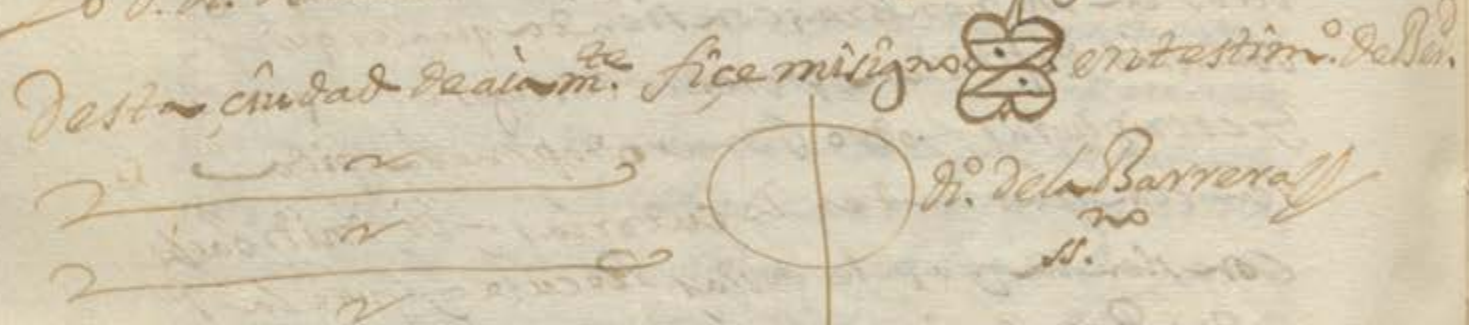 desta ciudad de aiamte. fiçe mi signo en testimo. de Verd.
Dio. de la Barrera
ssno.